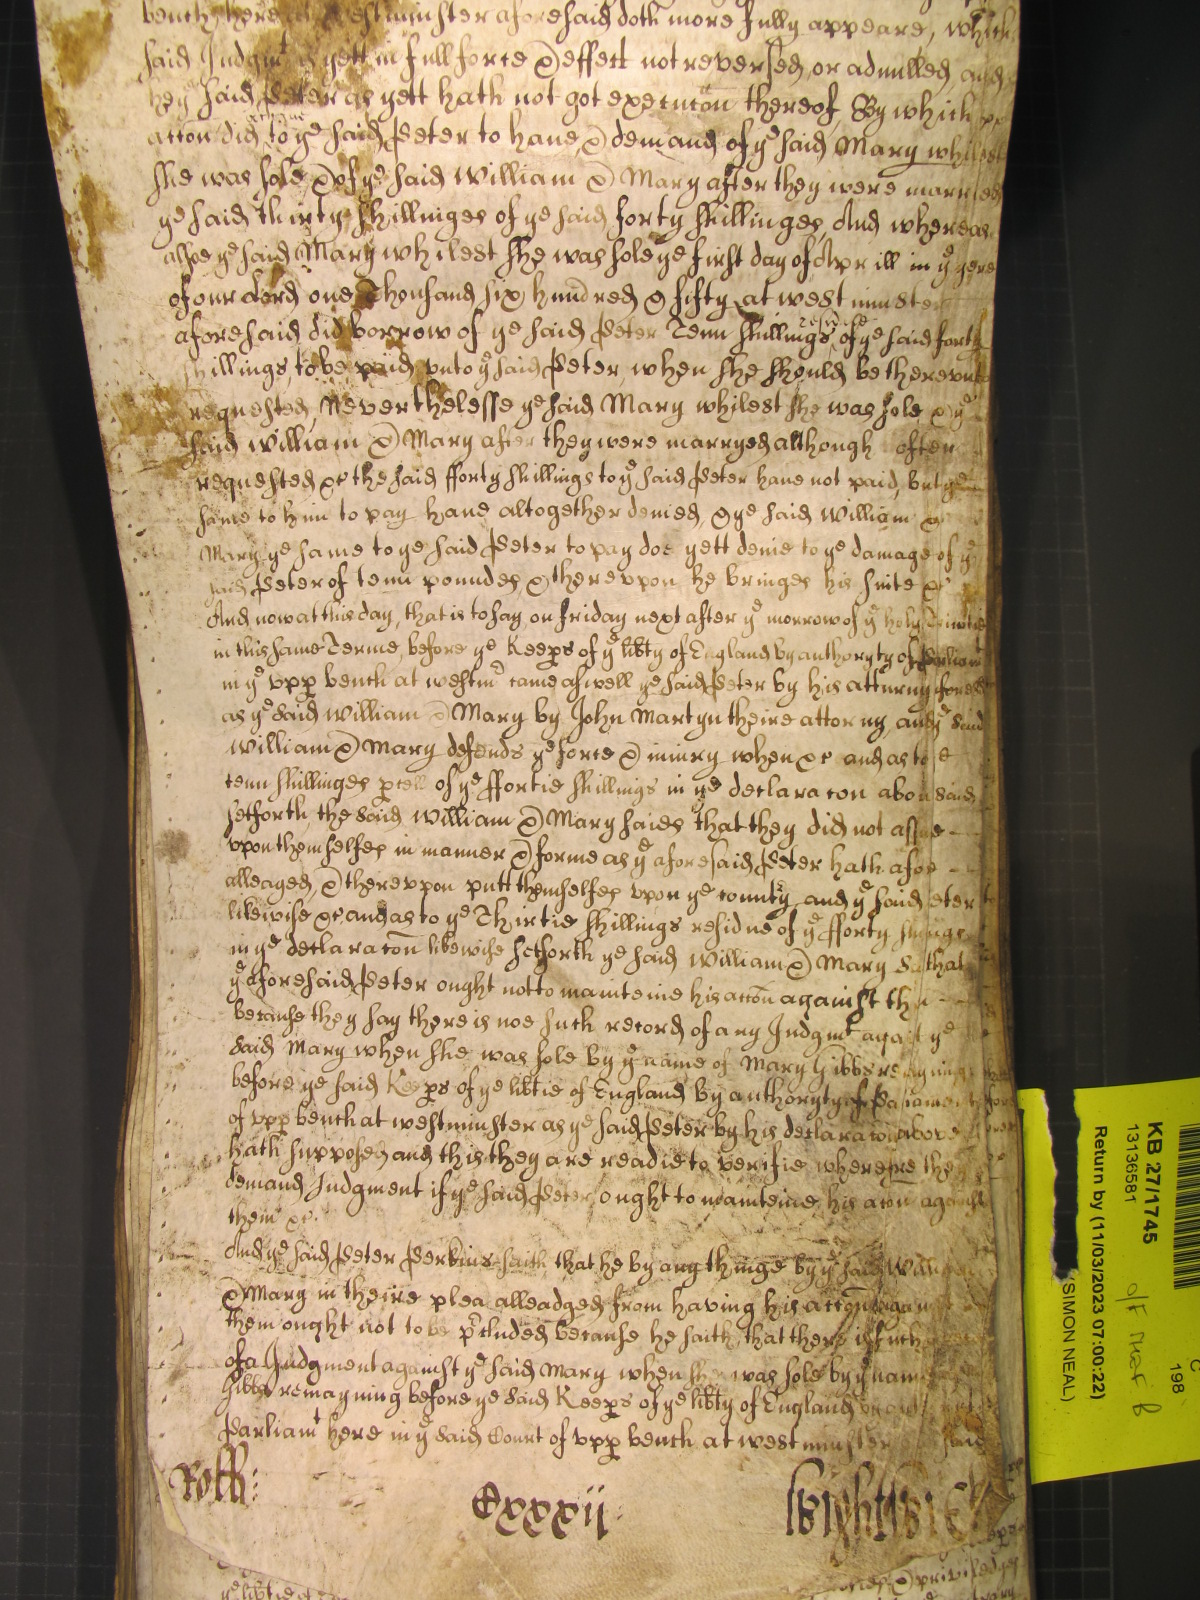 bench here at Westminster aforesaid doth more fully appeare, which
said Judgmt is yett in full force & effect not reversed, or adnulled and
hey said Peter as yett hath not got execucon thereof, By which
accon did to ye said Peter to have, & demand of ye said Mary whilest
she was sole, & of ye said William & Mary after they were marryed
ye said thirty shillinges of ye said forty shillinges, And whereas
alsoe ye said Mary whilest she was sole ye first day of Aprill in ye yere
of our Lord one Thousand six hundred & fifty at westminster
aforesaid did borrow of ye said Peter Tenn shillings residue of ye said forty
shillings, to be paid unto ye said Peter, when she should be thereunto
requested, Neverthelesse ye said Mary whilest she was sole & ye
said William & Mary after they were marryed although often
requested &c the said fforty shillings to ye said Peter have not paid, but ye
same to him to pay have altogether denied, & ye said William &
Mary ye same to ye said Peter to pay doe yett denie to ye damage of ye
said Peter of tenn poundes & thereupon he bringes his suite &c
And now at this day, that is to say on Friday next after ye morrow of ye holy Trinitie
in this same Terme, before ye Keeps of ye libty of England by authoryty of Parliamt
in ye upp bench at westmr came aswell ye said Peter by his atturny aforesd
as ye said William & Mary by John Martyn theire attorny, and ye said
William & Mary defends ye force & iniury when &c and as to
tenn shillinges pcell of ye ffortie shillings in ye declaracon above said
setforth, the said William & Mary saies that they did not assume
upon themselfes in manner & forme as ye aforesaid Peter hath afor
alleaged, & thereupon putt themselfes upon ye county, and ye said Peter
likewise &c, and as to ye Thirtie shillings residue of ye fforty shillings
in ye declaracon likewise setforth ye said William & Mary say that
ye aforesaid Peter ought not to mainteine his accon against
because they say there is noe such record of any Judgmt against ye
said Mary when she was sole by ye name of Mary Gibbs remayning
before ye said Keeps of ye libtie of England by authoryty of Parliament
of upp bench at westminster as ye said Peter by his declaracon above
hath supposed and this they are readie to verifie wherefore they
demand Judgment if ye said Peter ought to mainteine his accon against
them &c.
And ye said Peter Perkins saith that he by any thinge by ye said William
& Mary in theire plea alleadged from having his accon against
them ought not to be pcluded because he saith, that there is such
of a Judgment against ye said Mary when she was sole by ye name
Gibbs remayning before ye said Keeps of ye libty of England
Parliamt here in ye said Court of upp bench at westminster
Rolle:
Cxxxij
Wightwick
KB 27/1745
13136581
Return by (11/03/2023 07:00:22)
(SIMON NEAL)
198